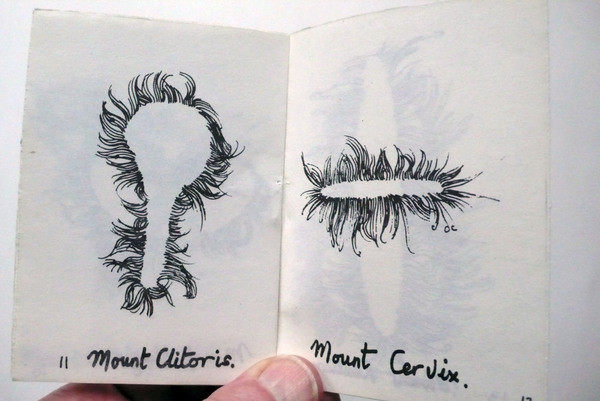 11 Mount Clitoris.
Mount Cervix.